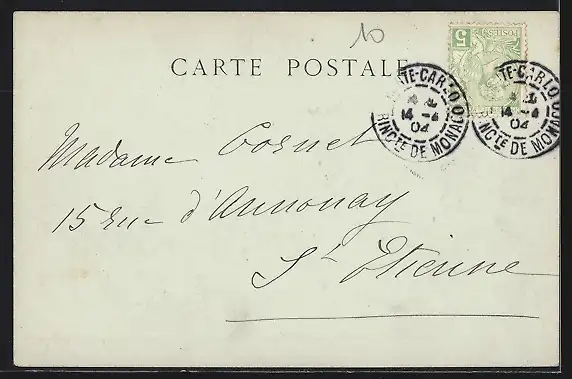 10
CARTE POSTALE
5
POSTES
MONTE-CARLO
14 -4
04
PRINCTE DE MONACO
MONTE-CARLO
14 -4
04
PRINCTE DE MONACO
Madame Cornet
15 rue d'Annonay
St Etienne